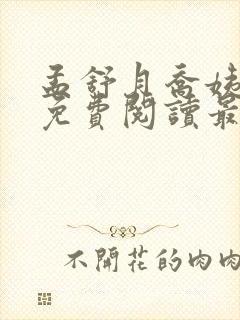 孟舒月喬姨
免費閱讀最
不開花的肉肉